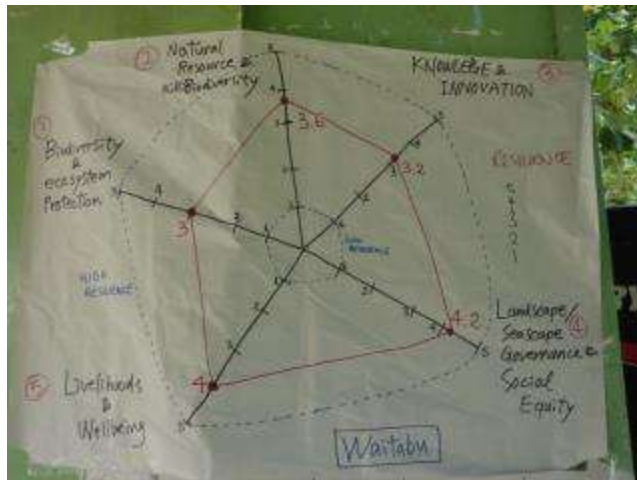 ②
Natural
Resource &
Biodiversity
KNOWLEDGE &
INNOVATION
③
①
Biodiversity
&
ecosystem
Protection
3.5
3.2
RESILIENCE
5
4
3
2
1
3
LOW
RESILIENCE
HIGH
RESILIENCE
4.2
Landscape/
Seascape
Governance &
Social
Equity
④
4
⑤
Livelihoods
&
Wellbeing
Waitabu